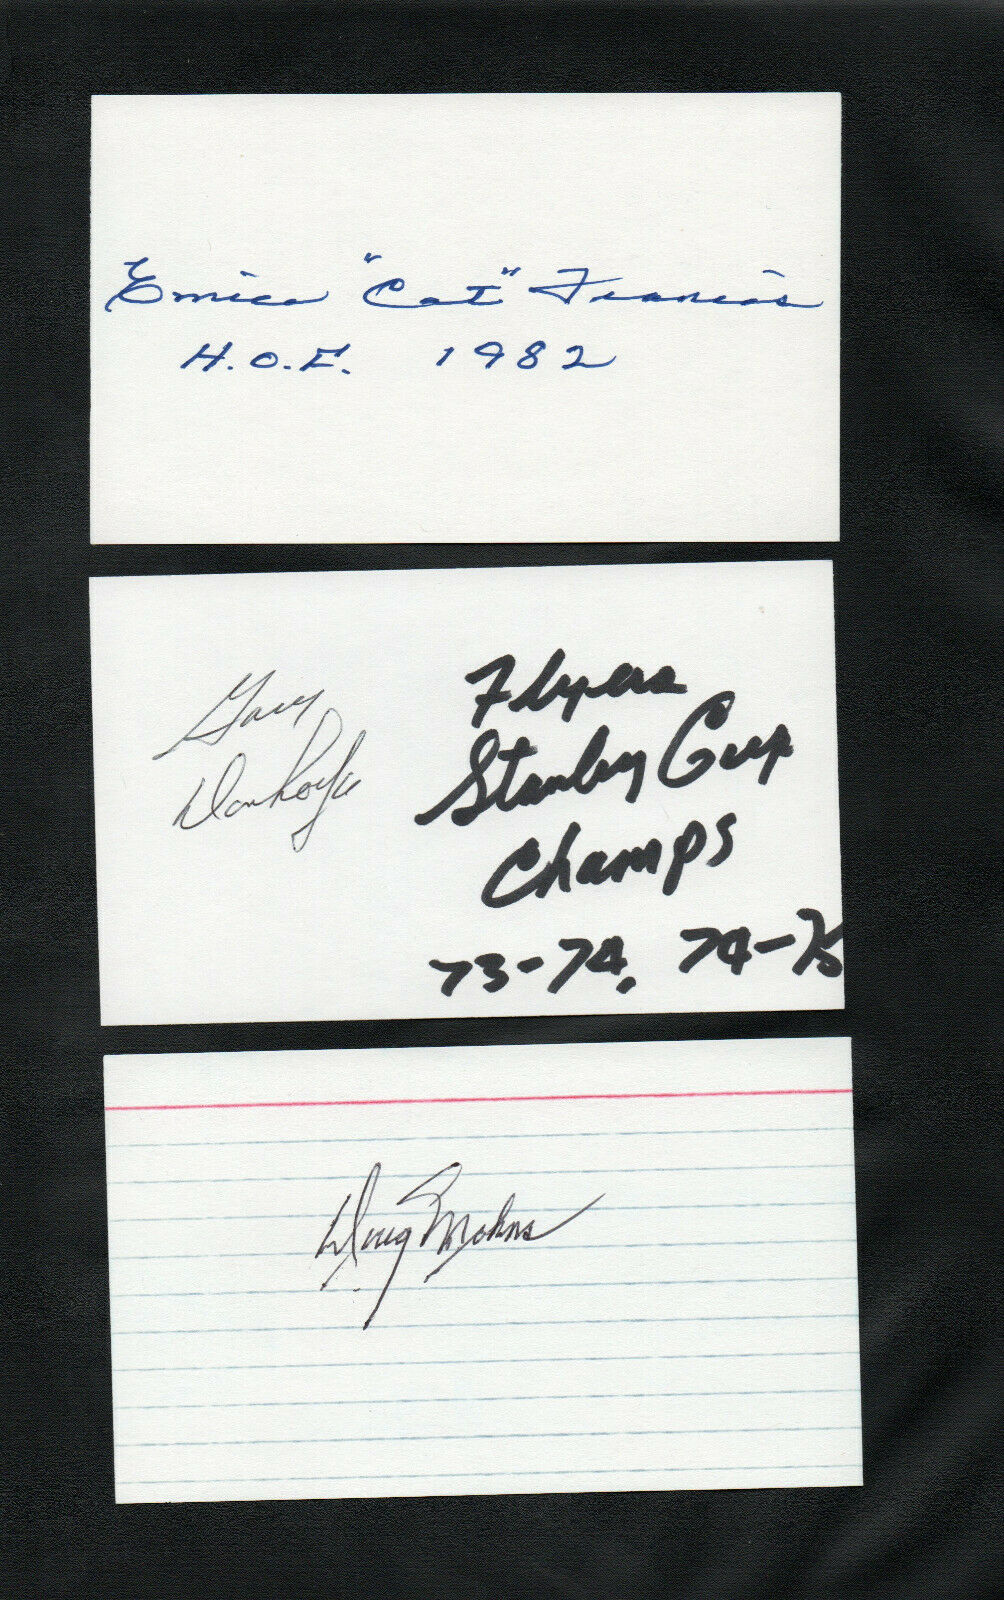 Emile "Cat" Francis
H.O.F. 1982
Gary
Dornhoefer
Flyers
Stanley Cup
Champs
73-74, 74-75
Doug Mohns